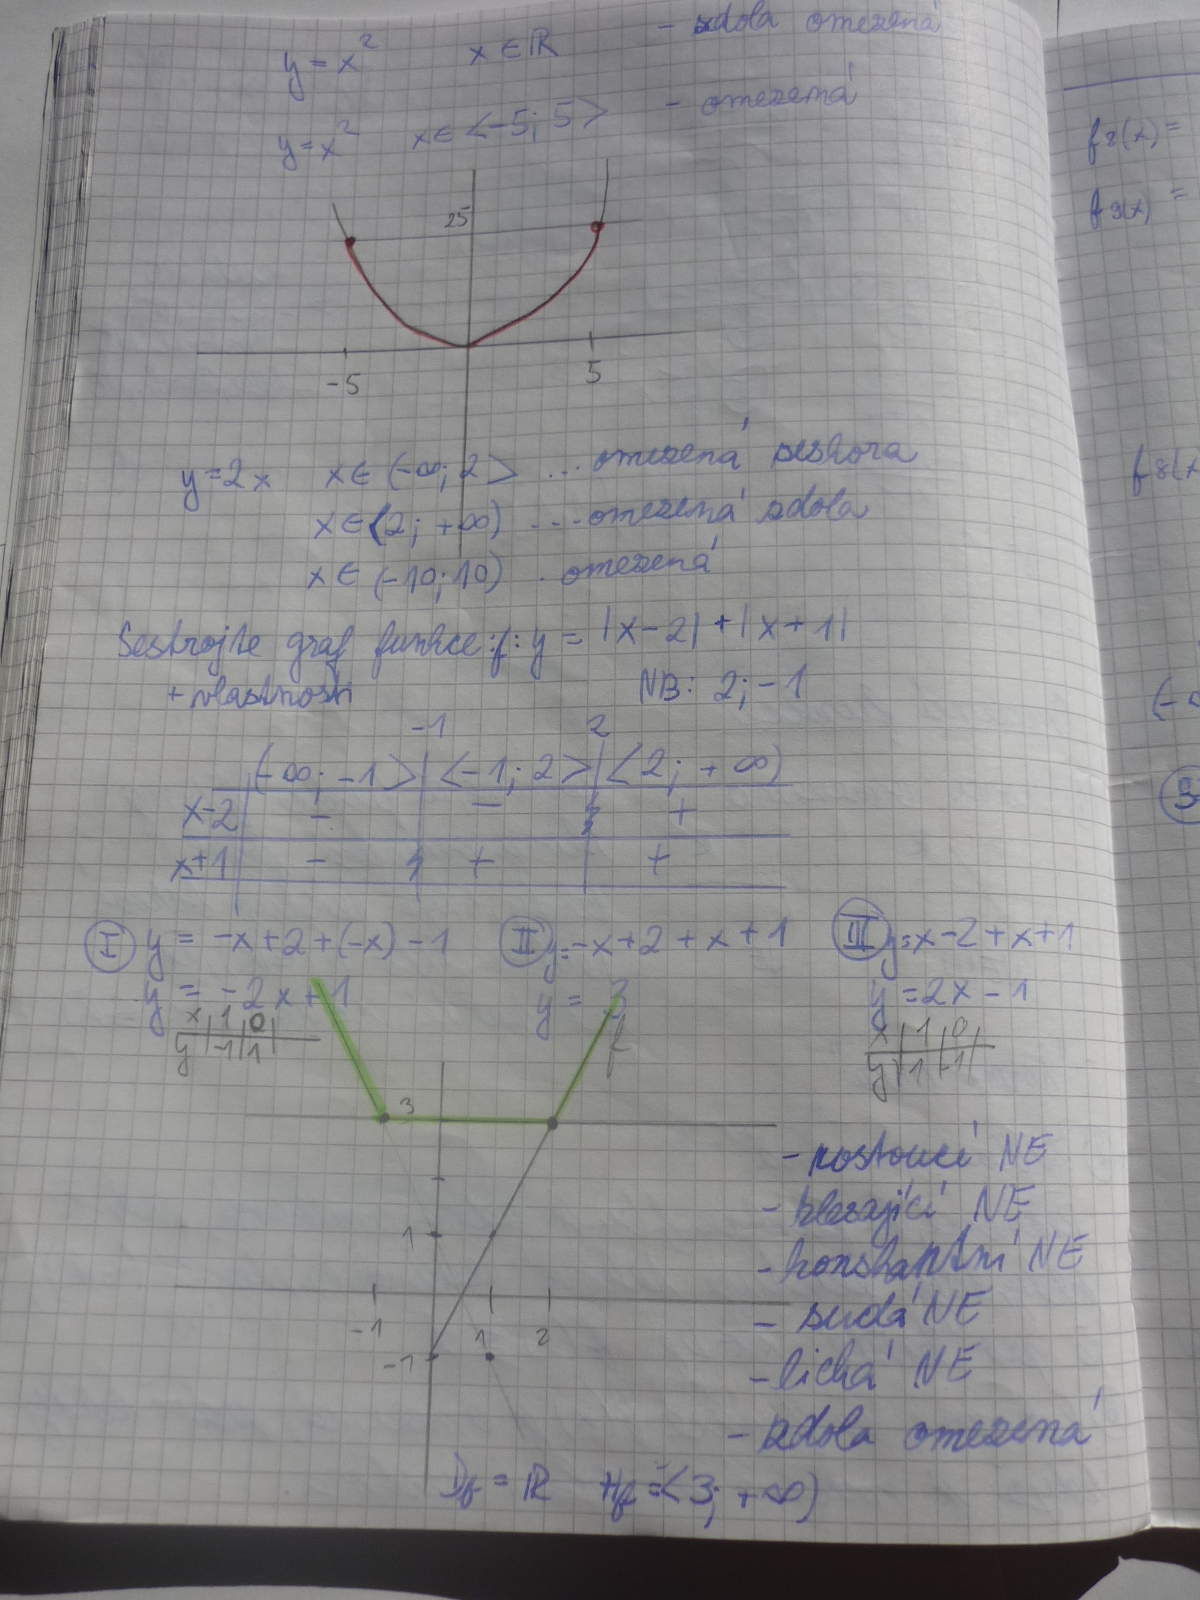 y = x² x ∈ ℝ - zdola omezená
y = x² x ∈ <-5; 5> - omezená
25
-5 5
y = 2x x ∈ (-∞; 2> ... omezená seshora
x ∈ <2; +∞) ... omezená zdola
x ∈ (-10; 10) . omezená
Sestrojte graf funkce: f: y = |x-2| + |x+1|
+ vlastnosti NB: 2; -1
-1 2
(-∞; -1> <-1; 2> <2; +∞)
x-2 - - +
x+1 - + +
I y = -x+2+(-x)-1 II y = -x+2+x+1 III y = x-2+x+1
y = -2x+1 y = 3 y = 2x-1
x 1 0 f x 1 0
y -1 1 y 1 -1
3
- rostoucí NE
- klesající NE
1
- konstantní NE
- sudá NE
-1 1 2
-1
- lichá NE
- zdola omezená
Df = ℝ Hf = <3; +∞)
f8(x) =
f9(x) =
f8(x
(-∞